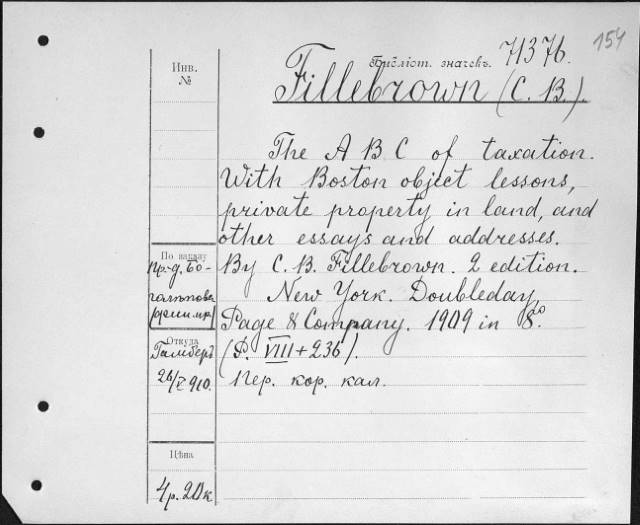 154
Библіот. значекъ. 71376.
Инв.
№
Fillebrown (C. B.).
The A B C of taxation.
With Boston object lessons,
private property in land, and
other essays and addresses.
По заказу
By C. B. Fillebrown. 2 edition.
New York. Doubleday,
Page & Company. 1909 in 8°.
Откуда
(P. VIII + 236).
26/V 910.
Пер. кор. кал.
Цѣна
4 р. 20 к